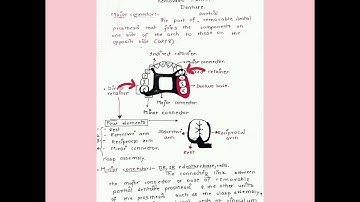 Removable
Denture.
Major connector:-
the part of removable dental
prosthesis that joins the components on
one side of the arch to those on the
opposite side (GPT8)
Indirect retainer.
major connector.
retainer
Direct
retainer
Denture base.
Major connector.
Minor connector
Four elements
Rest
Retentive arm
Reciprocal arm
Minor connector.
Retentive
arm
Reciprocal
arm
Rest
clasp assembly
Minor connector:- DR, IR & denture base, rests.
The connecting link between
the major connector or base of removable
partial denture prosthesis & the other units
of the prosthesis such as the clasp assembly